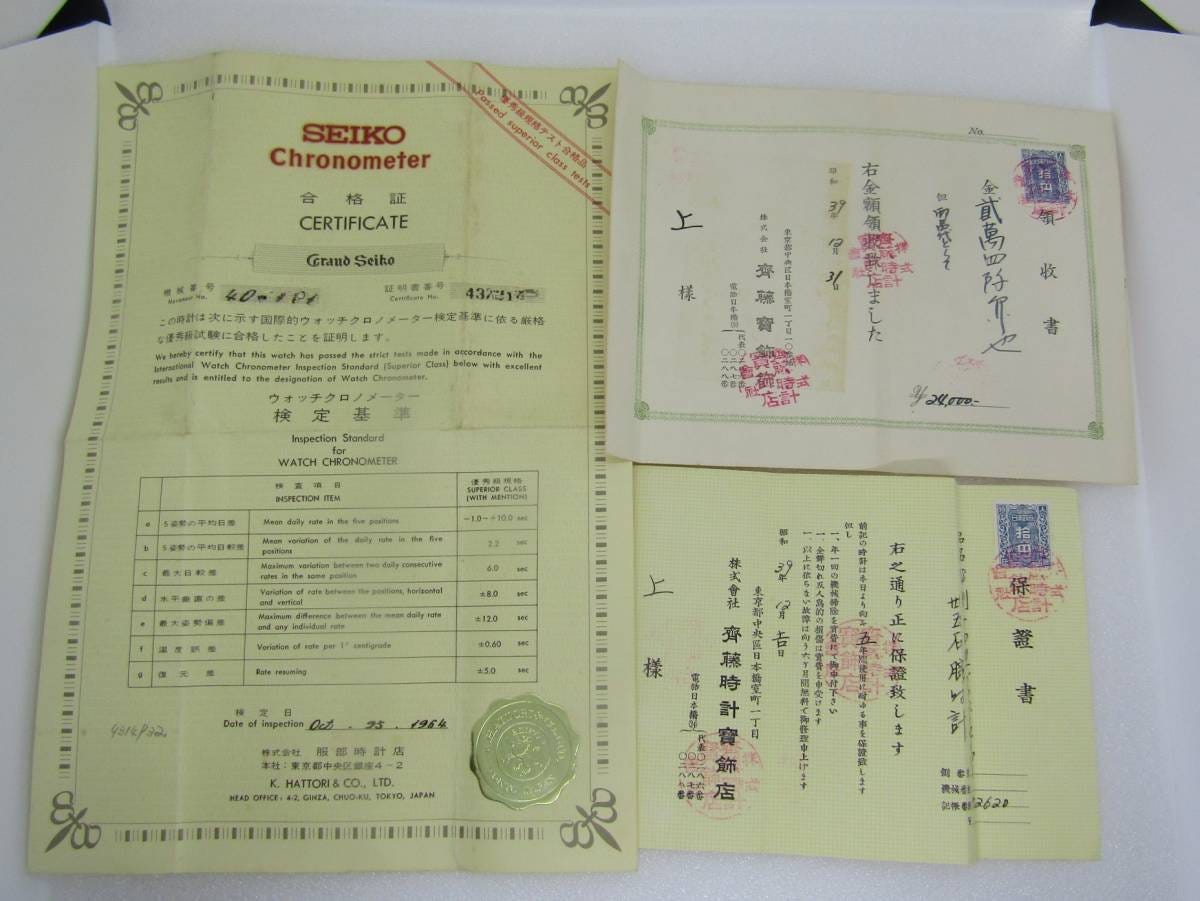 優秀級規格テスト合格品
Passed superior class tests
SEIKO
Chronometer
合格証
CERTIFICATE
Grand Seiko
機械番号
Movement No.
証明書番号
Certificate No.
この時計は次に示す国際的ウォッチクロノメーター検定基準に依る厳格
な優秀級試験に合格したことを証明します。
We hereby certify that this watch has passed the strict tests made in accordance with the
International Watch Chronometer Inspection Standard (Superior Class) below with excellent
results and is entitled to the designation of Watch Chronometer.
ウォッチクロノメーター
検定基準
Inspection Standard
for
WATCH CHRONOMETER
検査項目
INSPECTION ITEM
優秀級規格
SUPERIOR CLASS
(WITH MENTION)
a 5姿勢の平均日差 Mean daily rate in the five positions -1.0~+10.0 sec
b 5姿勢の平均日較差 Mean variation of the daily rate in the five positions 2.2 sec
c 最大日較差 Maximum variation between two daily consecutive rates in the same position 6.0 sec
d 水平垂直の差 Variation of rate between the positions, horizontal and vertical ±8.0 sec
e 最大姿勢偏差 Maximum difference between the mean daily rate and any individual rate ±12.0 sec
f 温度誤差 Variation of rate per 1° centigrade ±0.60 sec
g 復元差 Rate resuming ±5.0 sec
検定日
Date of inspection Oct. 25. 1964
4314932
株式会社 服部時計店
本社:東京都中央区銀座4-2
K. HATTORI & CO., LTD.
HEAD OFFICE: 4-2, GINZA, CHUO-KU, TOKYO, JAPAN
No.
領収書
拾円
金貳萬四阡円也
但
右金額領収致しました
昭和39年12月31日
東京都中央区日本橋室町一丁目一〇番地
株式会社 齊藤寶飾店
電話日本橋(241)代表〇二八六番
〇二八七番
〇二八八番
上様
¥24,000-
保證書
拾円
廿五石腕時計
側番
機械番
記帳
2620
右之通り正に保證致します
前記の時計は本日より向う五年間使用に耐ゆる事を保證致します
但し
一、年一回の機械掃除を實費にて御申付下さい
一、全舞切れ及人爲的の損傷は實費を申受けます
一、以上に依らない故障は向う六ヶ月間無料で御修理申上げます
昭和39年12月 日
東京都中央區日本橋室町一丁目
株式會社 齊藤時計寶飾店
電話日本橋(24)代表〇二八六番
〇二八七番
〇二八八番
上様